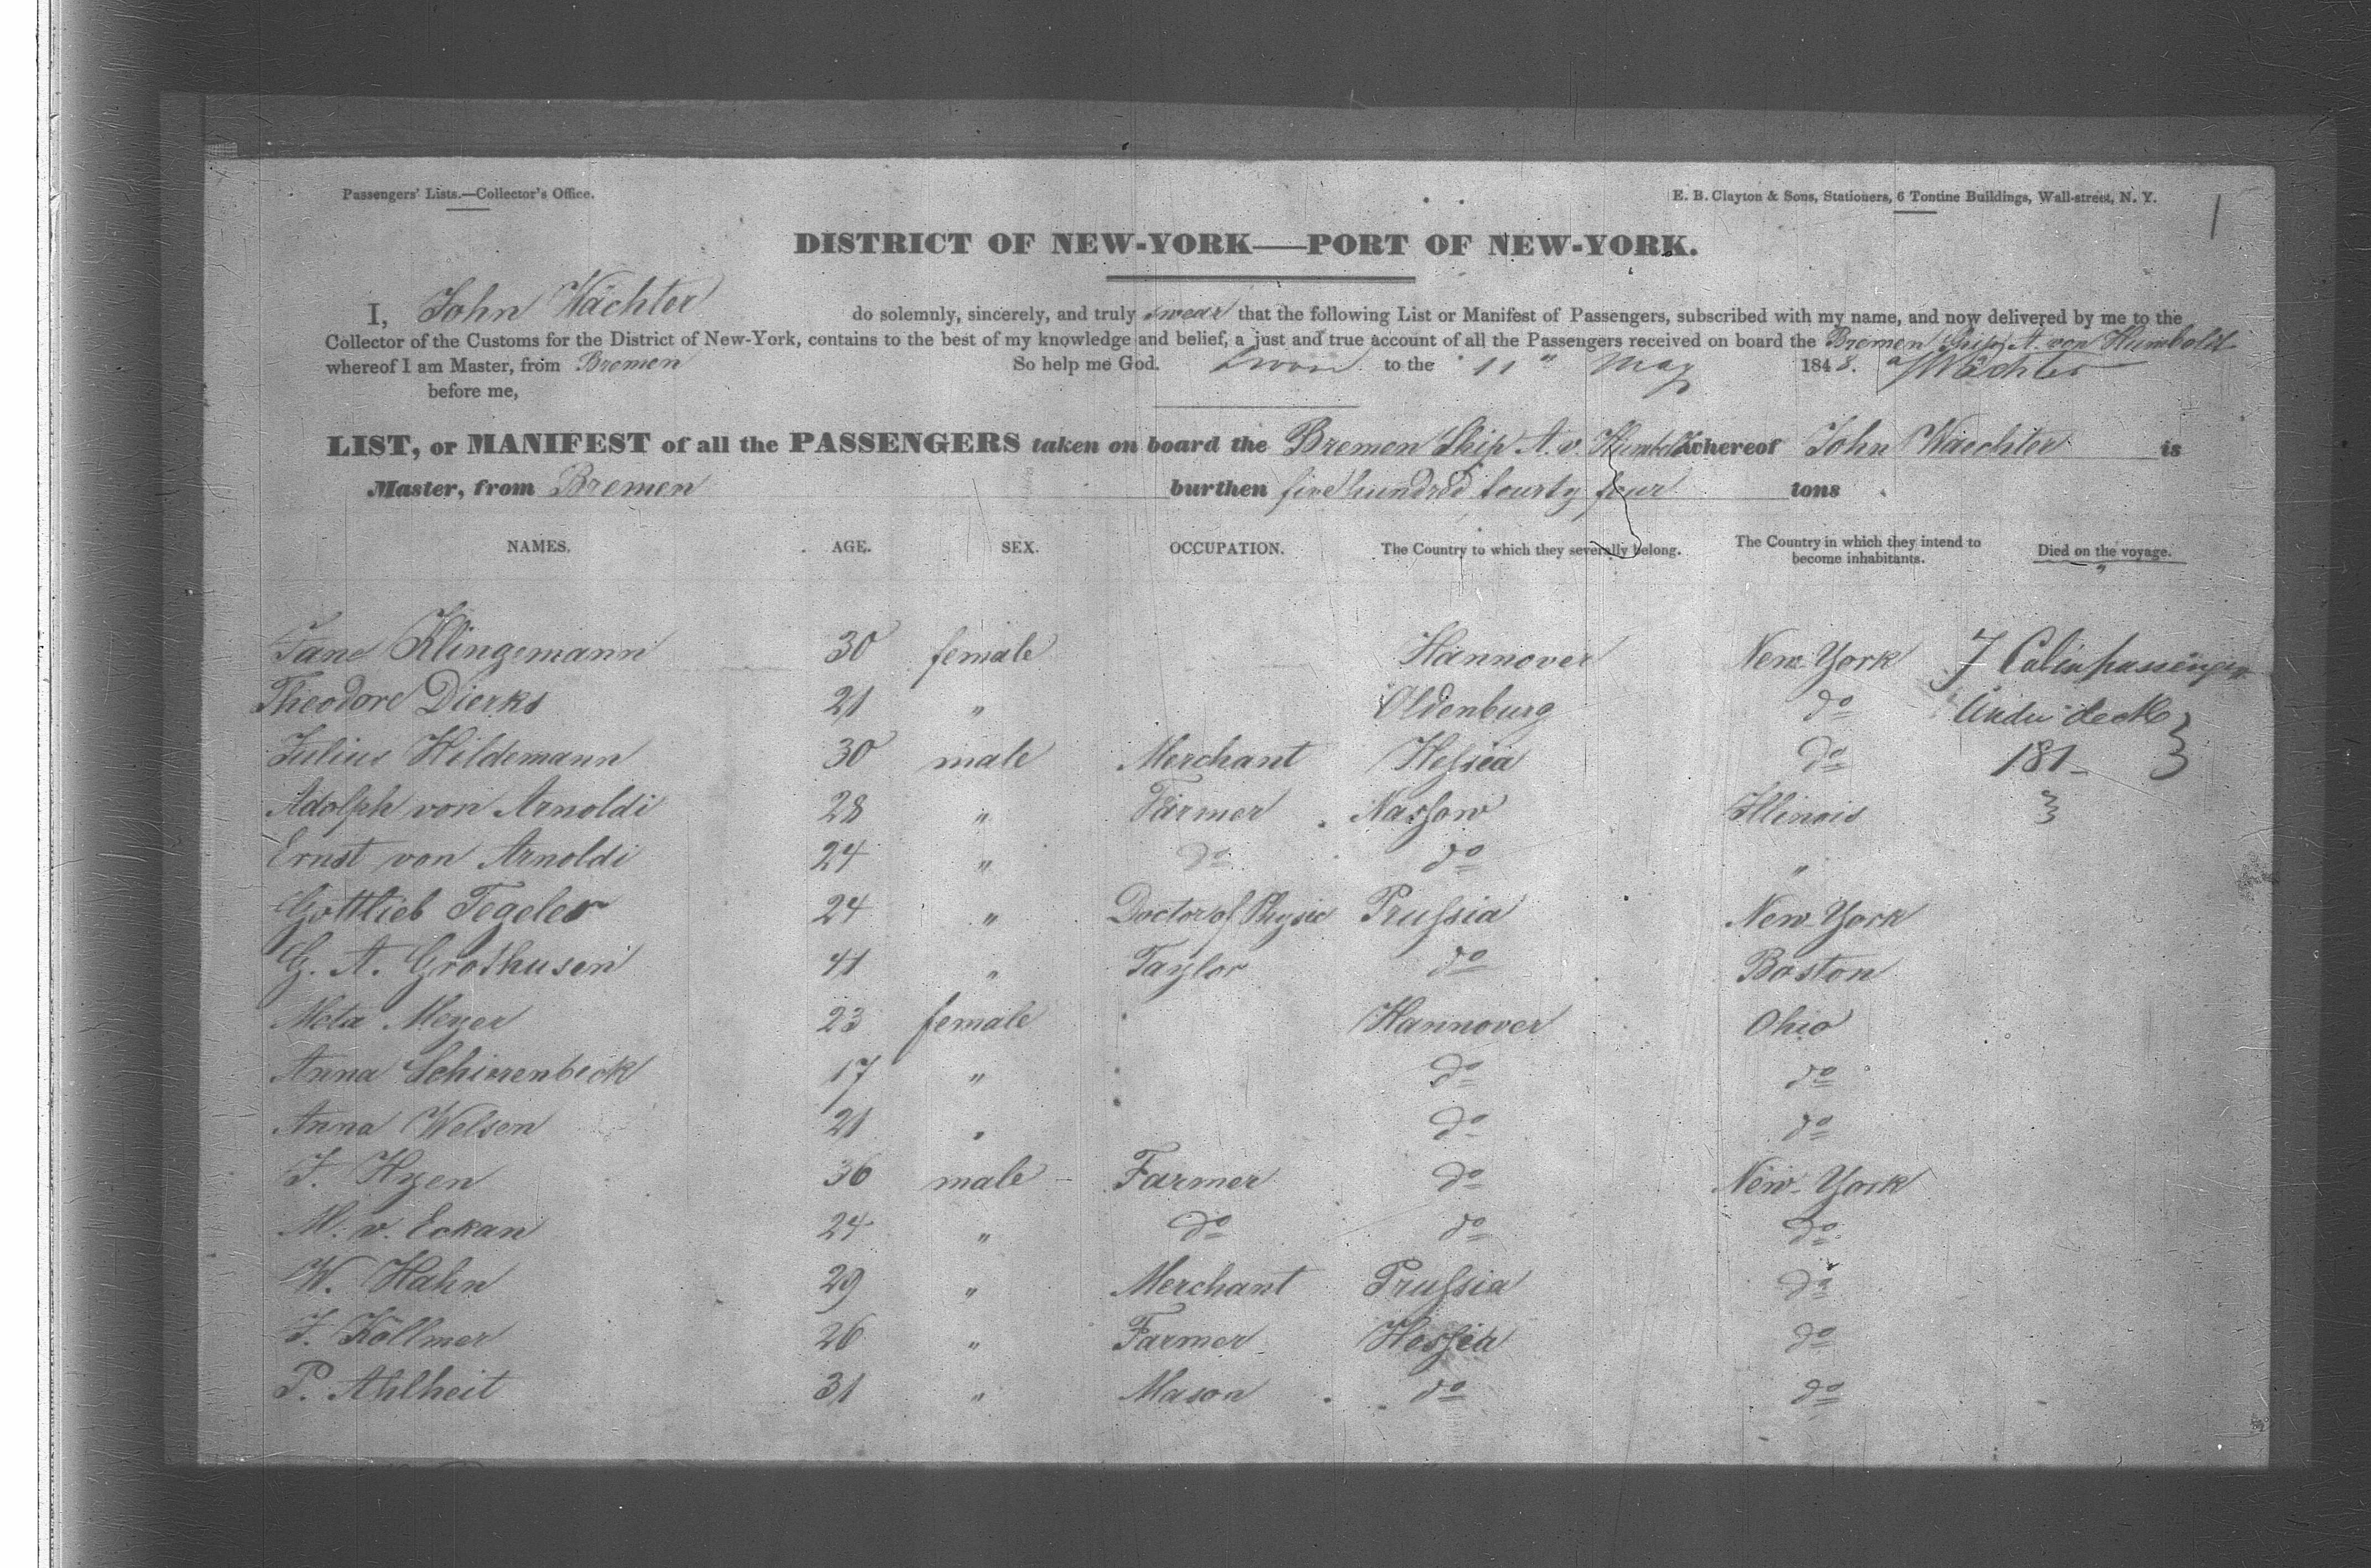 Passengers' Lists.—Collector's Office.
E. B. Clayton & Sons, Stationers, 6 Tontine Buildings, Wall-street, N. Y.
DISTRICT OF NEW-YORK—PORT OF NEW-YORK.
I, John Wächter do solemnly, sincerely, and truly swear that the following List or Manifest of Passengers, subscribed with my name, and now delivered by me to the
Collector of the Customs for the District of New-York, contains to the best of my knowledge and belief, a just and true account of all the Passengers received on board the Bremen Ship A. von Humboldt
whereof I am Master, from Bremen So help me God. Sworn to the 11" May 1848. Wächter
before me,
LIST, or MANIFEST of all the PASSENGERS taken on board the Bremen Ship A. v. Humboldt whereof John Waechter is
Master, from Bremen burthen five hundred fourty four tons
NAMES. AGE. SEX. OCCUPATION. The Country to which they severally belong. The Country in which they intend to become inhabitants. Died on the voyage.
Jane Klingemann 30 female Hannover New York 7 Cabin passengers
Theodore Dierks 21 " Oldenburg do Under deck
Julius Hildemann 30 male Merchant Hessia do 181
Adolph von Arnoldi 28 " Farmer Nassow Illinois
Ernst von Arnoldi 24 " do do "
Gottlieb Tegeler 24 " Doctor of Physic Prussia New-York
G. A. Grothusen 41 " Taylor do Boston
Meta Meyer 23 female Hannover Ohio
Anna Schierenbeck 17 " do do
Anna Welsen 21 " do do
J. Hyen 36 male Farmer do New-York
M. v. Eckan 24 " do do do
W. Hahn 29 " Merchant Prussia do
J. Köllmer 26 " Farmer Hessia do
P. Ahlheit 31 " Mason do do